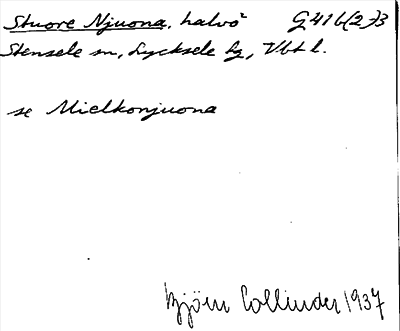 Stuore Njuona, halvö G416(2-)3
Stensele sn, Lycksele lg, Vbt l.
se Mielkonjuona
Björn Collinder 1937